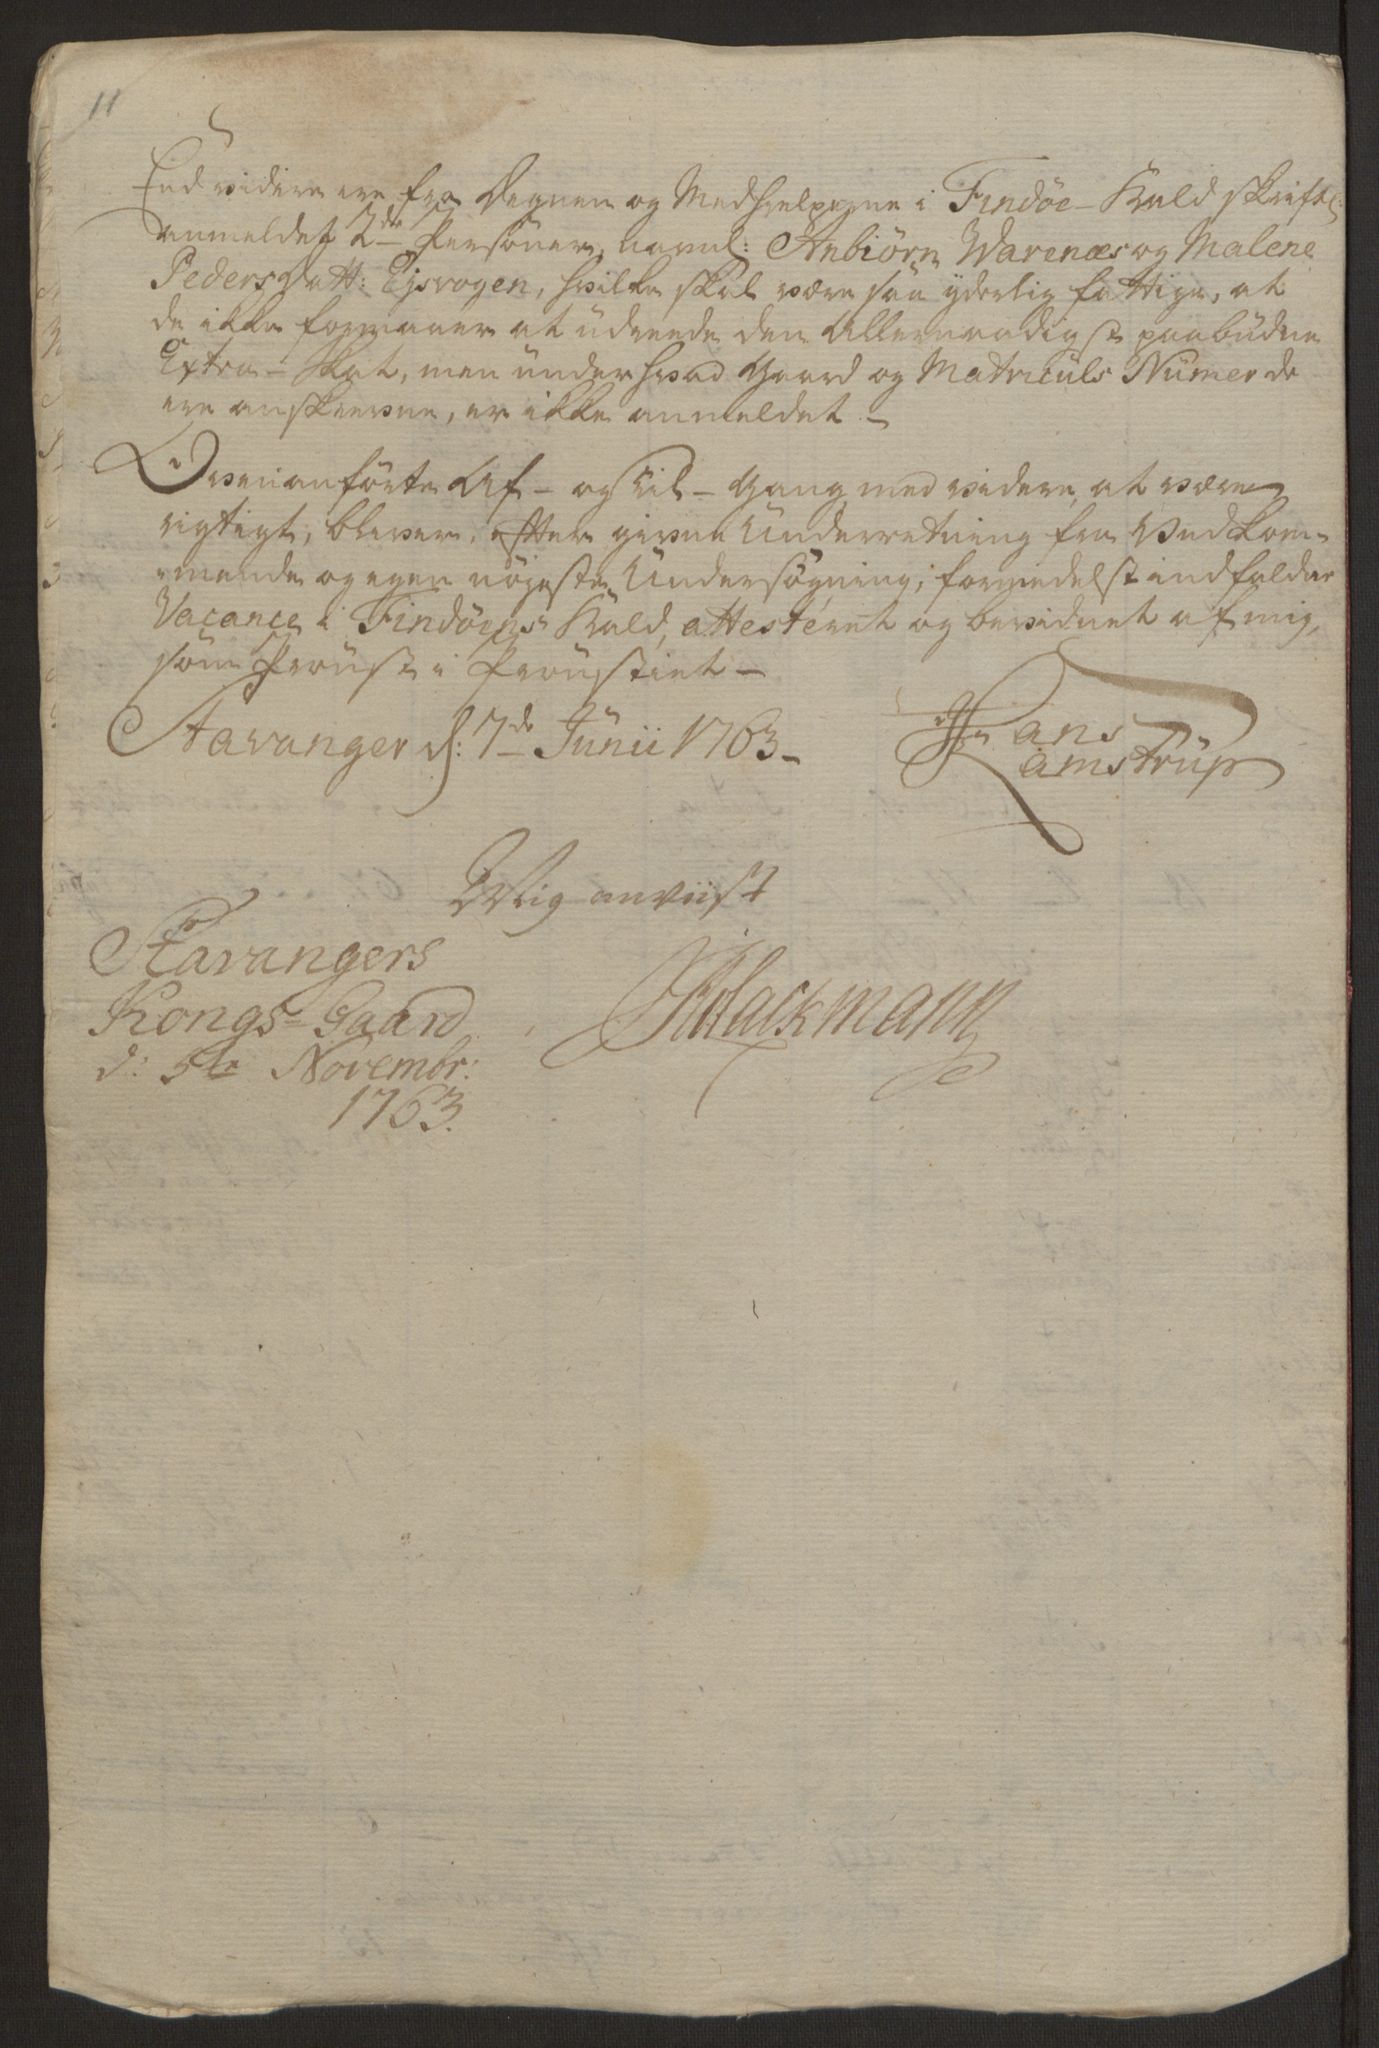 11
End videre ere fra Degnen og Medhielperne i Findöe-Kald skriftl:
anmeldet 2de Persöner, navnl: Anbiörn Warenæs og Malene
Peders Datt: Ejsvogen, hvilke skal være saa yderlig fattige, at
de ikke formaaer at üdreede den Allernaadigst paabüdne
Extra-Skat, men ünder hvad Gaard og Matriculs Nümer de
ere anskrevne, er ikke anmeldet.-
Ovenanförte Af- og Til-Gang med videre, at være
rigtigt, bliver, efter givne Ünderretning fra Vedkom-
mende og egen nöjeste Ündersögning, formedelst indfalden
Vacance i Findöens Kald, attesteret og bevidnet af mig,
som Proüst i Proüstiet-
Stavanger d: 7de Jünii 1763-
Hans
Ramstrüp
Mig anviist
Stavangers
Kongs-Gaard
d: 5te Novembr:
1763.